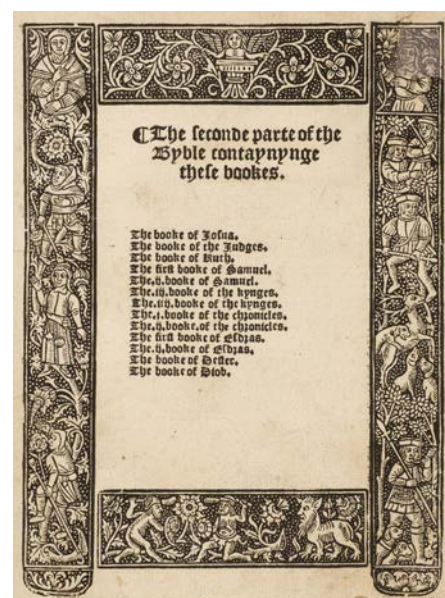 ¶The seconde parte of the
Byble contaynynge
these bookes.
The booke of Josua.
The booke of the Judges.
The booke of Ruth.
The first booke of Samuel.
The.ij.booke of Samuel.
The.iij.booke of the kynges.
The.iiij.booke of the kynges.
The.i.booke of the chronicles.
The.ij.booke.of the chronicles.
The first booke of Esdras.
The.ij.booke of Esdras.
The booke of Hester.
The booke of Hiob.